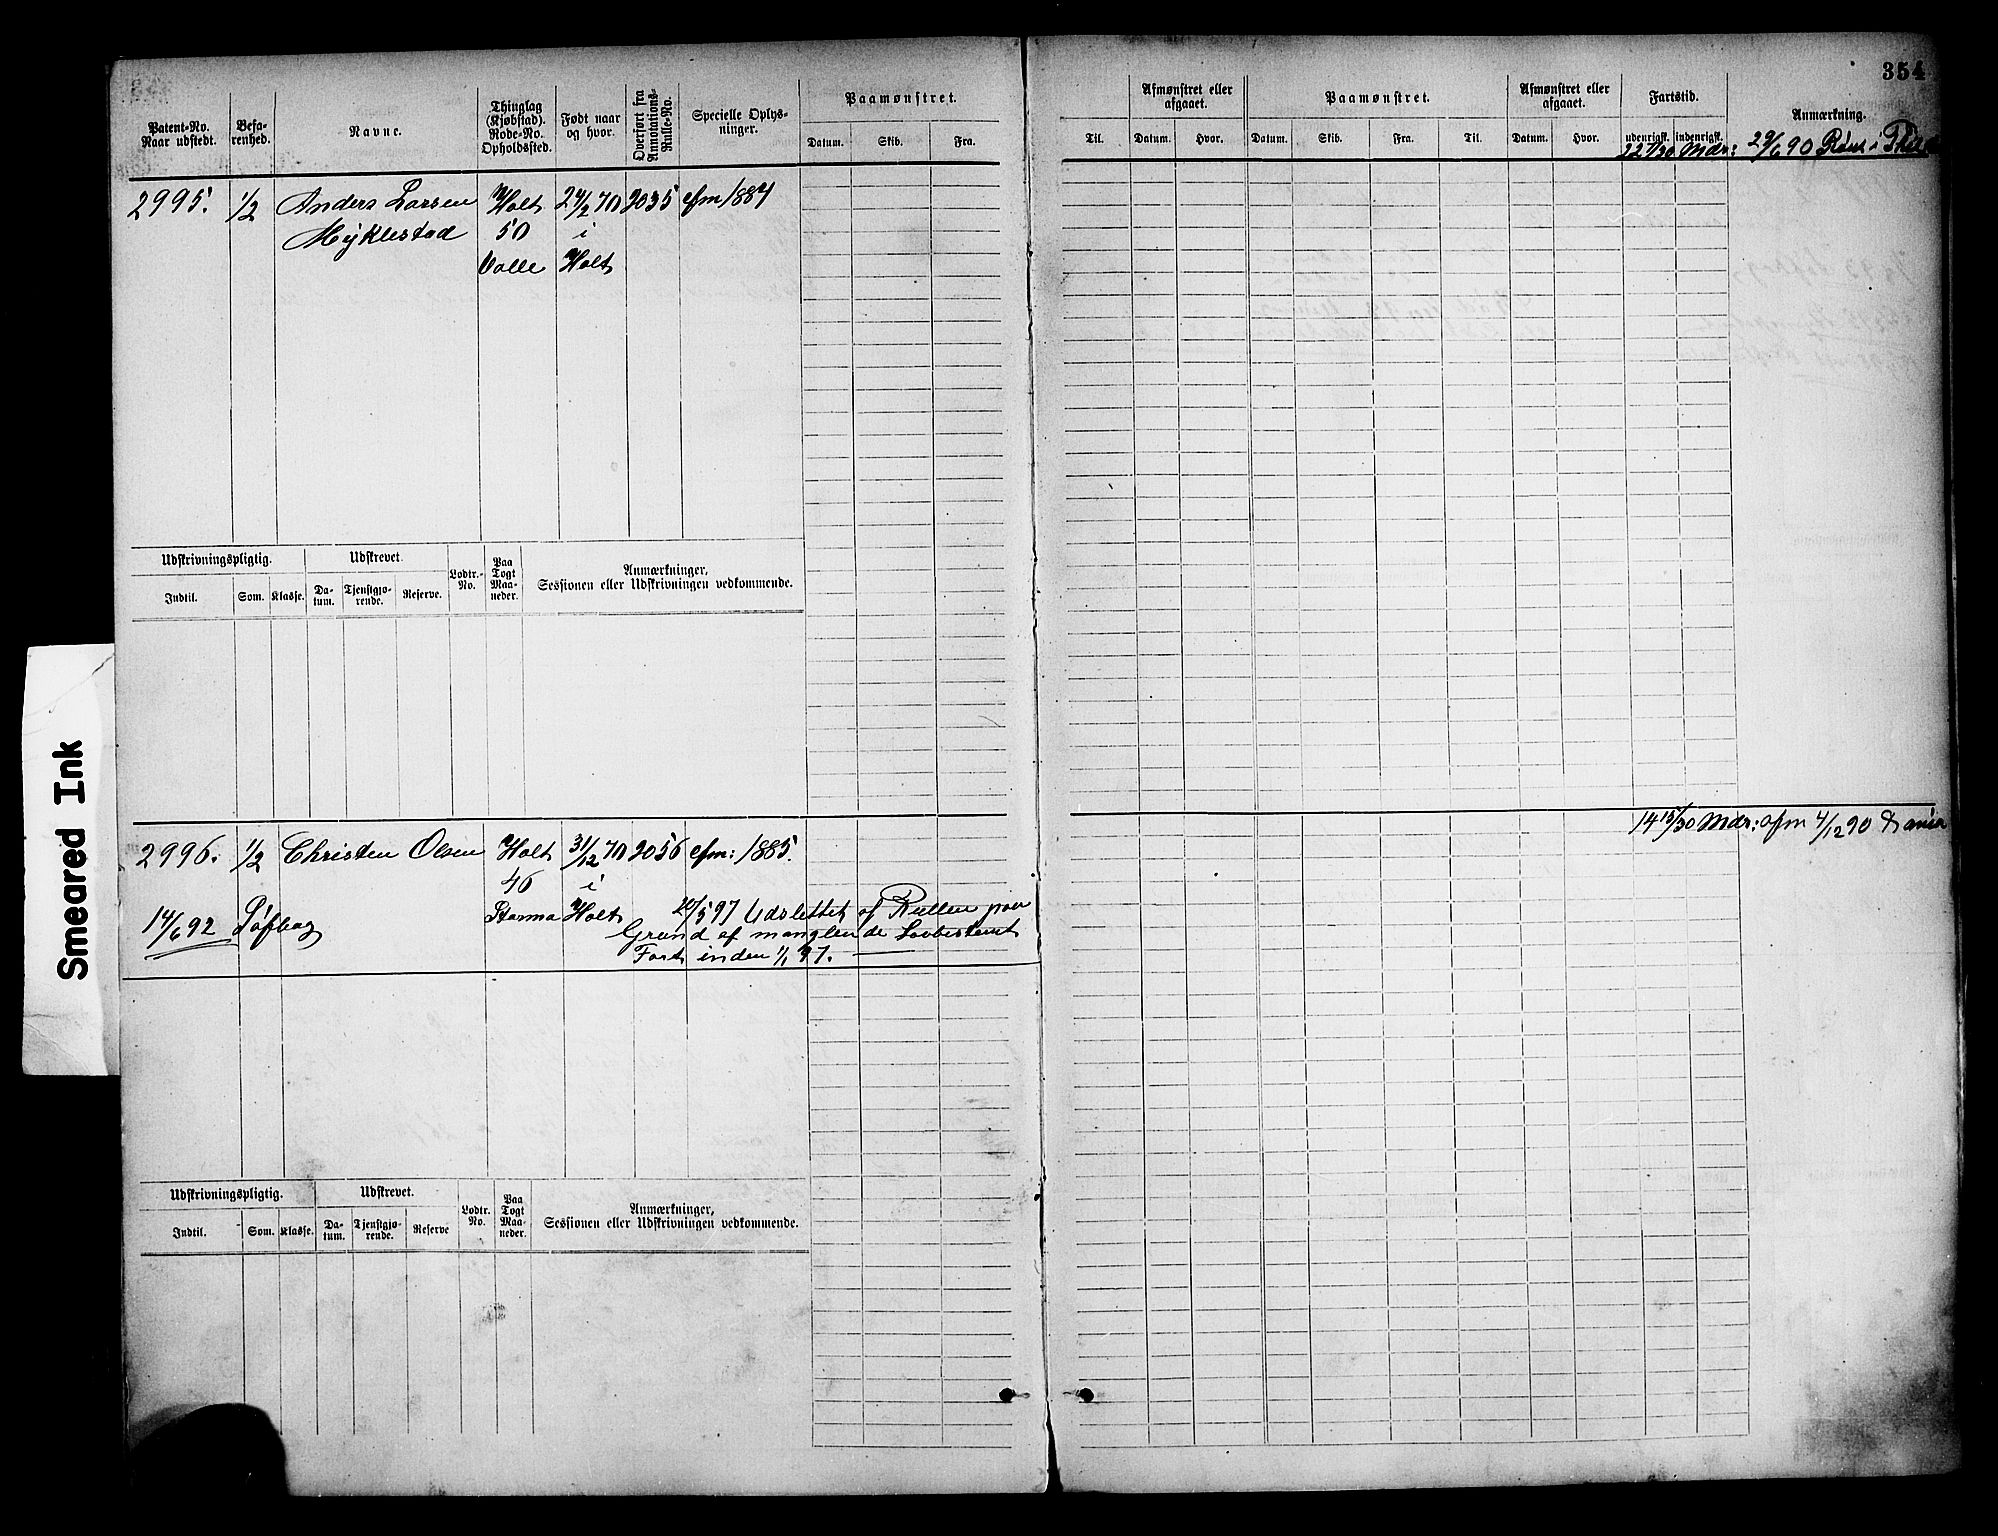 354
Patent-No. Naar udstedt.
Befarenhed.
Navne.
Thinglag (Kjøbstad). Rode-No. Opholdssted.
Født naar og hvor.
Overført fra Annotations-Rulle-No.
Specielle Oplysninger.
Paamønstret.
Datum. Skib. Fra.
Til.
Afmønstret eller afgaaet.
Datum. Hvor.
Paamønstret.
Datum. Skib. Fra. Til.
Afmønstret eller afgaaet.
Datum. Hvor.
Fartstid.
udenrigsk. indenrigsk.
Anmærkning.
Mdr: 29/6 90
2995. 1/2 Anders Larsen Holt 24/2 70 2035 cfm 1884
Myklestad 50 i
Valle Holt
Udskrivningspligtig. Udskrevet. Lodtr.-No. Paa Togt Maaneder. Anmærkninger, Sessionen eller Udskrivningen vedkommende.
Indtil. Som. Klasse. Datum. Tjenstgjørende. Reserve.
14 15/30 Mdr: afm 4/12 90
2996. 1/2 Christen Olsen Holt 31/12 70 2056 cfm: 1885.
46 i
14/6 92 Holt 5 97 Udslettet af Rullen paa
Grund af manglende Lovbestemt
Fart inden 1/1 97.
Udskrivningspligtig. Udskrevet. Lodtr. No. Paa Togt Maaneder. Anmærkninger, Sessionen eller Udskrivningen vedkommende.
Indtil. Som. Klasse. Datum. Tjenstgjørende. Reserve
Smeared Ink